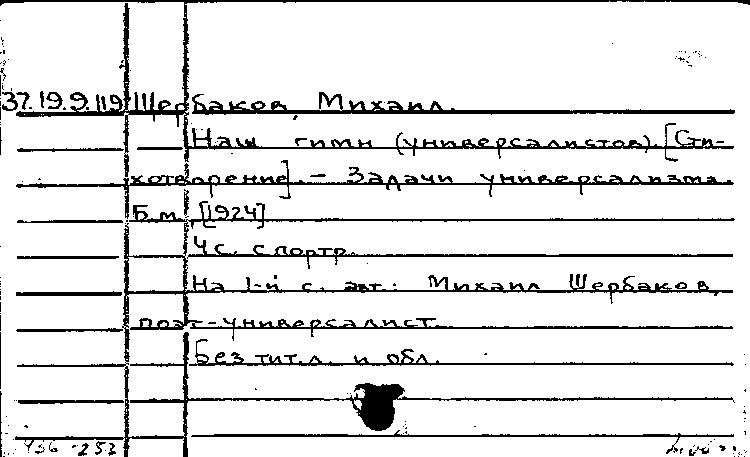 37.19.9.119 Шербаков, Михаил.
Наш гимн (универсалистов). [Сти-
хотворение]. – Задачи универсализма.
Б.м., [1924]
4 с. с портр.
На 1-й с. авт.: Михаил Шербаков,
поэт-универсалист.
Без тит.л. и обл.
436-253